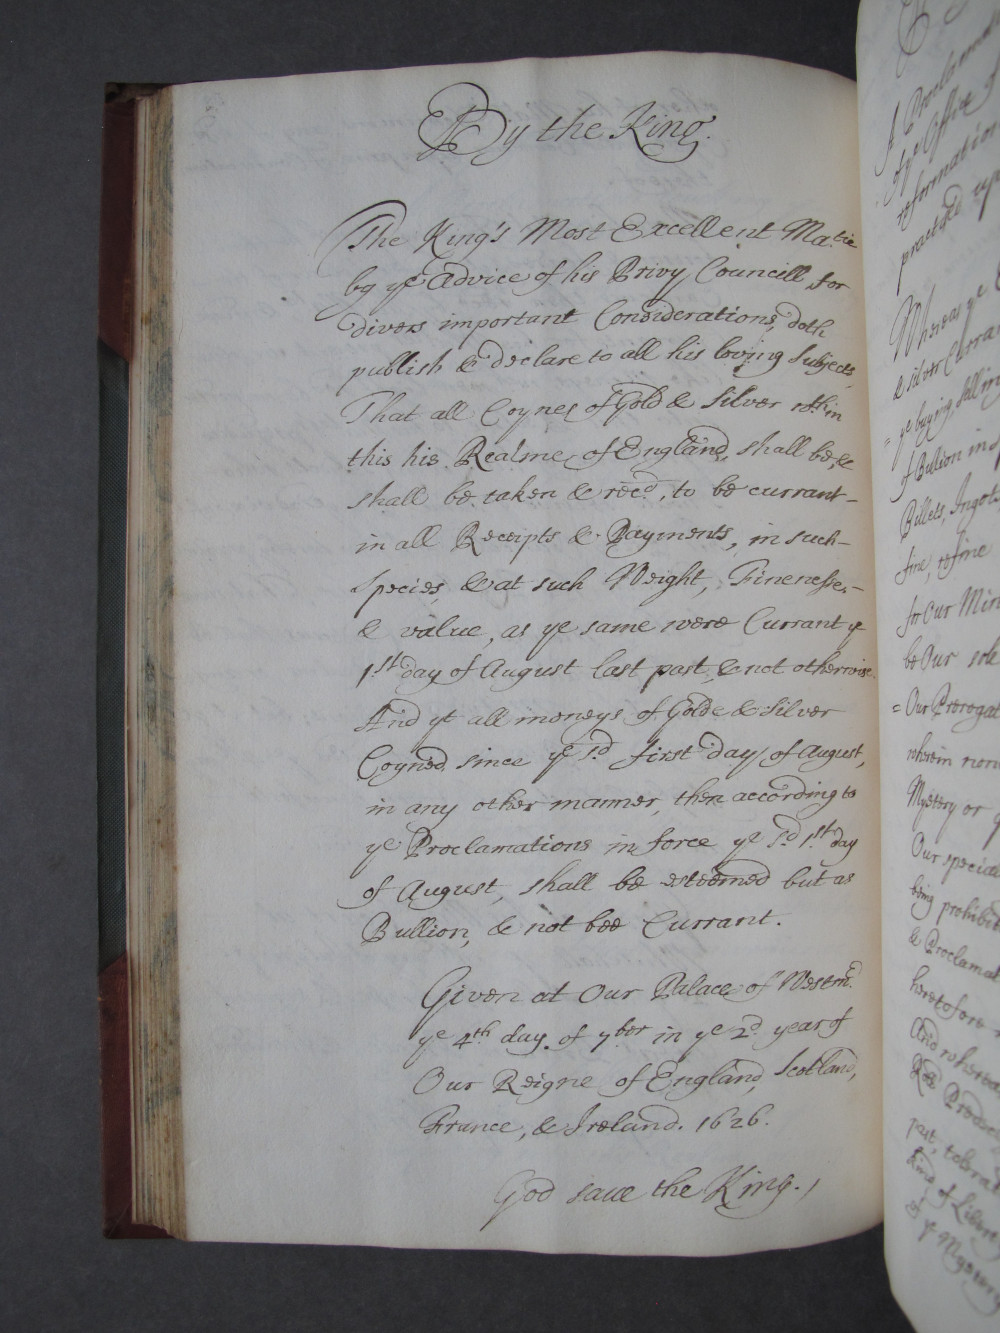 By the King.
The King's Most Excellent Ma.tie
by ye Advice of his Privy Councill, for
divers important Considerations, doth
publish & declare to all his loving Subjects,
That all Coynes of Gold & Silver wthin
this his Realme of England, shall be, &
shall be taken & rec.d, to be currant
in all Receipts & Payments, in such
Species, & at such Weight, Finenesse,
& value, as ye same were Currant ye
1.st day of August last past, & not otherwise.
And yt all moneys of Golde & Silver
Coyned since ye s.d first day of August,
in any other manner, then according to
ye Proclamations in force ye s.d 1.st day
of August, shall be esteemed but as
Bullion, & not bee Currant.
Given at Our Palace of Westm.r
ye 4.th day of 7.ber in ye 2.d year of
Our Reigne of England, Scotland,
France, & Ireland. 1626.
God save the King.
A Proclamat
of ye Office of
reformation
practis'd up
Whereas ye
& silver Curra
= ye buying, selling
of Bullion in
Billets, Ingots
fine, refine
for Our Min
be Our sole
= Our Prerogat
wherein non
Mystery or
Our special
being prohibit
& Proclamat
heretofore
And whereas
past, tolerat
kind of Liberty
ye Mystery